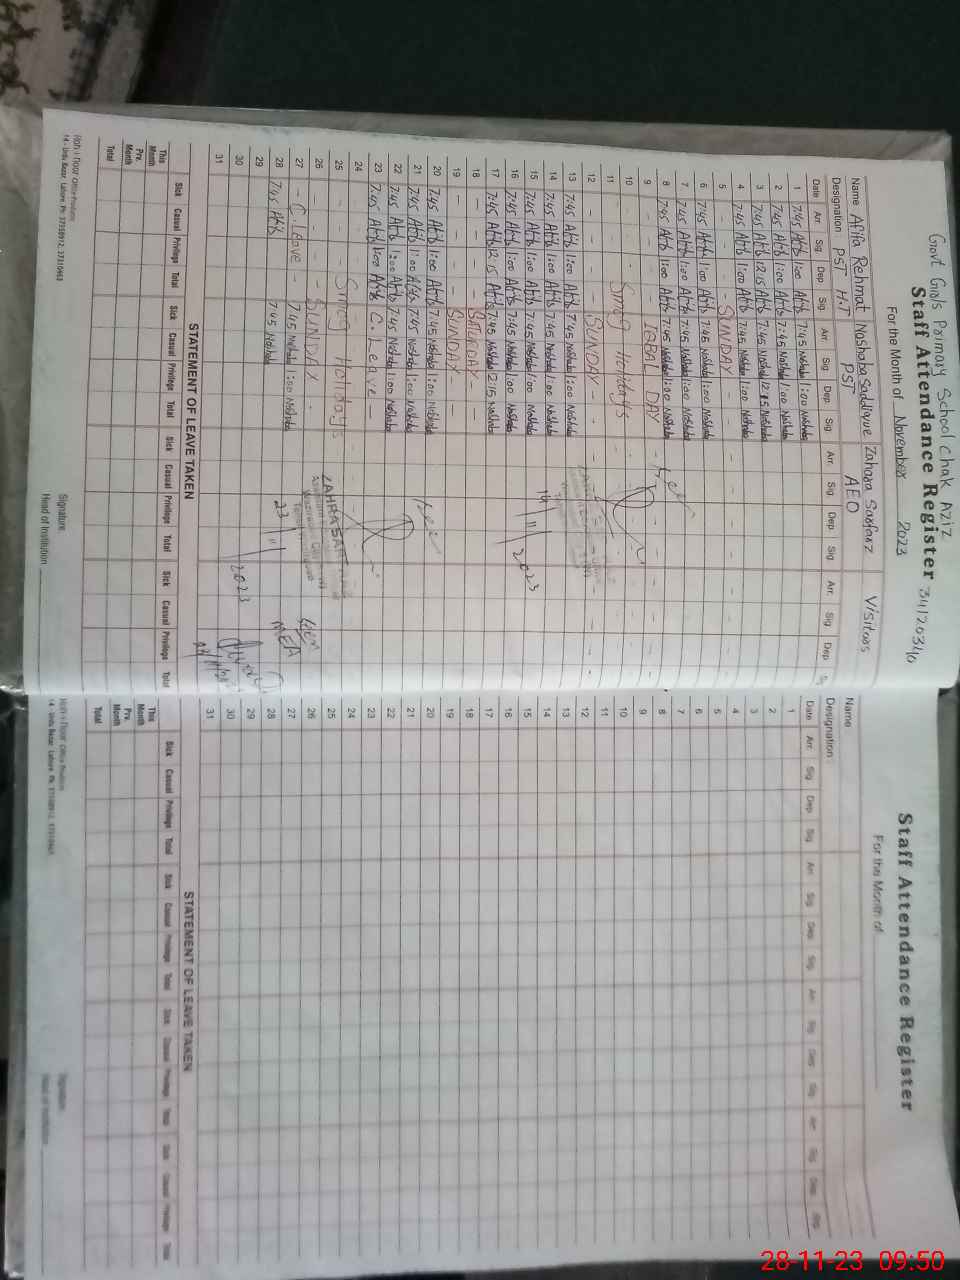 Govt Girls Primary School Chak Aziz
Staff Attendance Register 34120340
For the Month of November 2023
Name Afifa Rehmat Noshaba Saddique Zahara Sarfraz Visitors
Designation PST H.T PST AEO
Date Arr. Sig. Dep. Sig. Arr. Sig. Dep. Sig. Arr. Sig. Dep. Sig. Arr. Sig. Dep.
1 7:45 1:00 7:45 Noshaba 1:00 Noshaba
2 7:45 1:00 7:45 Noshaba 1:00 Noshaba
3 7:45 12:15 7:45 Noshaba 12:15 Noshaba
4 7:45 1:00 7:45 Noshaba 1:00 Noshaba
5 - - - SUNDAY - - -
6 7:45 1:00 7:45 Noshaba 1:00 Noshaba
7 7:45 1:00 7:45 Noshaba 1:00 Noshaba
8 7:45 1:00 7:45 Noshaba 1:00 Noshaba
9 - - - IQBAL DAY - -
10 - - -
11 Smog Holidays
12 - - - SUNDAY - - -
13 7:45 1:00 7:45 Noshaba 1:00 Noshaba
14 7:45 1:00 7:45 Noshaba 1:00 Noshaba 14/11/2023
15 7:45 1:00 7:45 Noshaba 1:00 Noshaba
16 7:45 1:00 7:45 Noshaba 1:00 Noshaba
17 7:45 12:15 7:45 Noshaba 12:15 Noshaba
18 - - - SATURDAY - -
19 - - - SUNDAY - -
20 7:45 1:00 7:45 Noshaba 1:00 Noshaba
21 7:45 1:00 7:45 Noshaba 1:00 Noshaba
22 7:45 1:00 7:45 Noshaba 1:00 Noshaba
23 7:45 1:00 C. Leave
24
25 Smog Holidays
26 - - - SUNDAY
27 - C. leave - 7:45 Noshaba 1:00 Noshaba MEA
28 7:45 7:45 Noshaba 23/11/2023
29
30
31
STATEMENT OF LEAVE TAKEN
Sick Casual Privilege Total Sick Casual Privilege Total Sick Casual Privilege Total Sick Casual Privilege Total
This Month
Prv. Month
Total
Signature
Head of Institution
14 - Urdu Bazar Lahore. Ph: 37350912, 37310463
Staff Attendance Register
For the Month of
Name
Designation
Date Arr. Sig. Dep. Sig. Arr. Sig. Dep. Sig. Arr. Sig. Dep. Sig. Arr. Sig. Dep. Sig.
1
2
3
4
5
6
7
8
9
10
11
12
13
14
15
16
17
18
19
20
21
22
23
24
25
26
27
28
29
30
31
STATEMENT OF LEAVE TAKEN
Sick Casual Privilege Total Sick Casual Privilege Total Sick Casual Privilege Total Sick Casual Privilege Total
This Month
Prv. Month
Total
Signature
Head of Institution
28-11-23 09:50